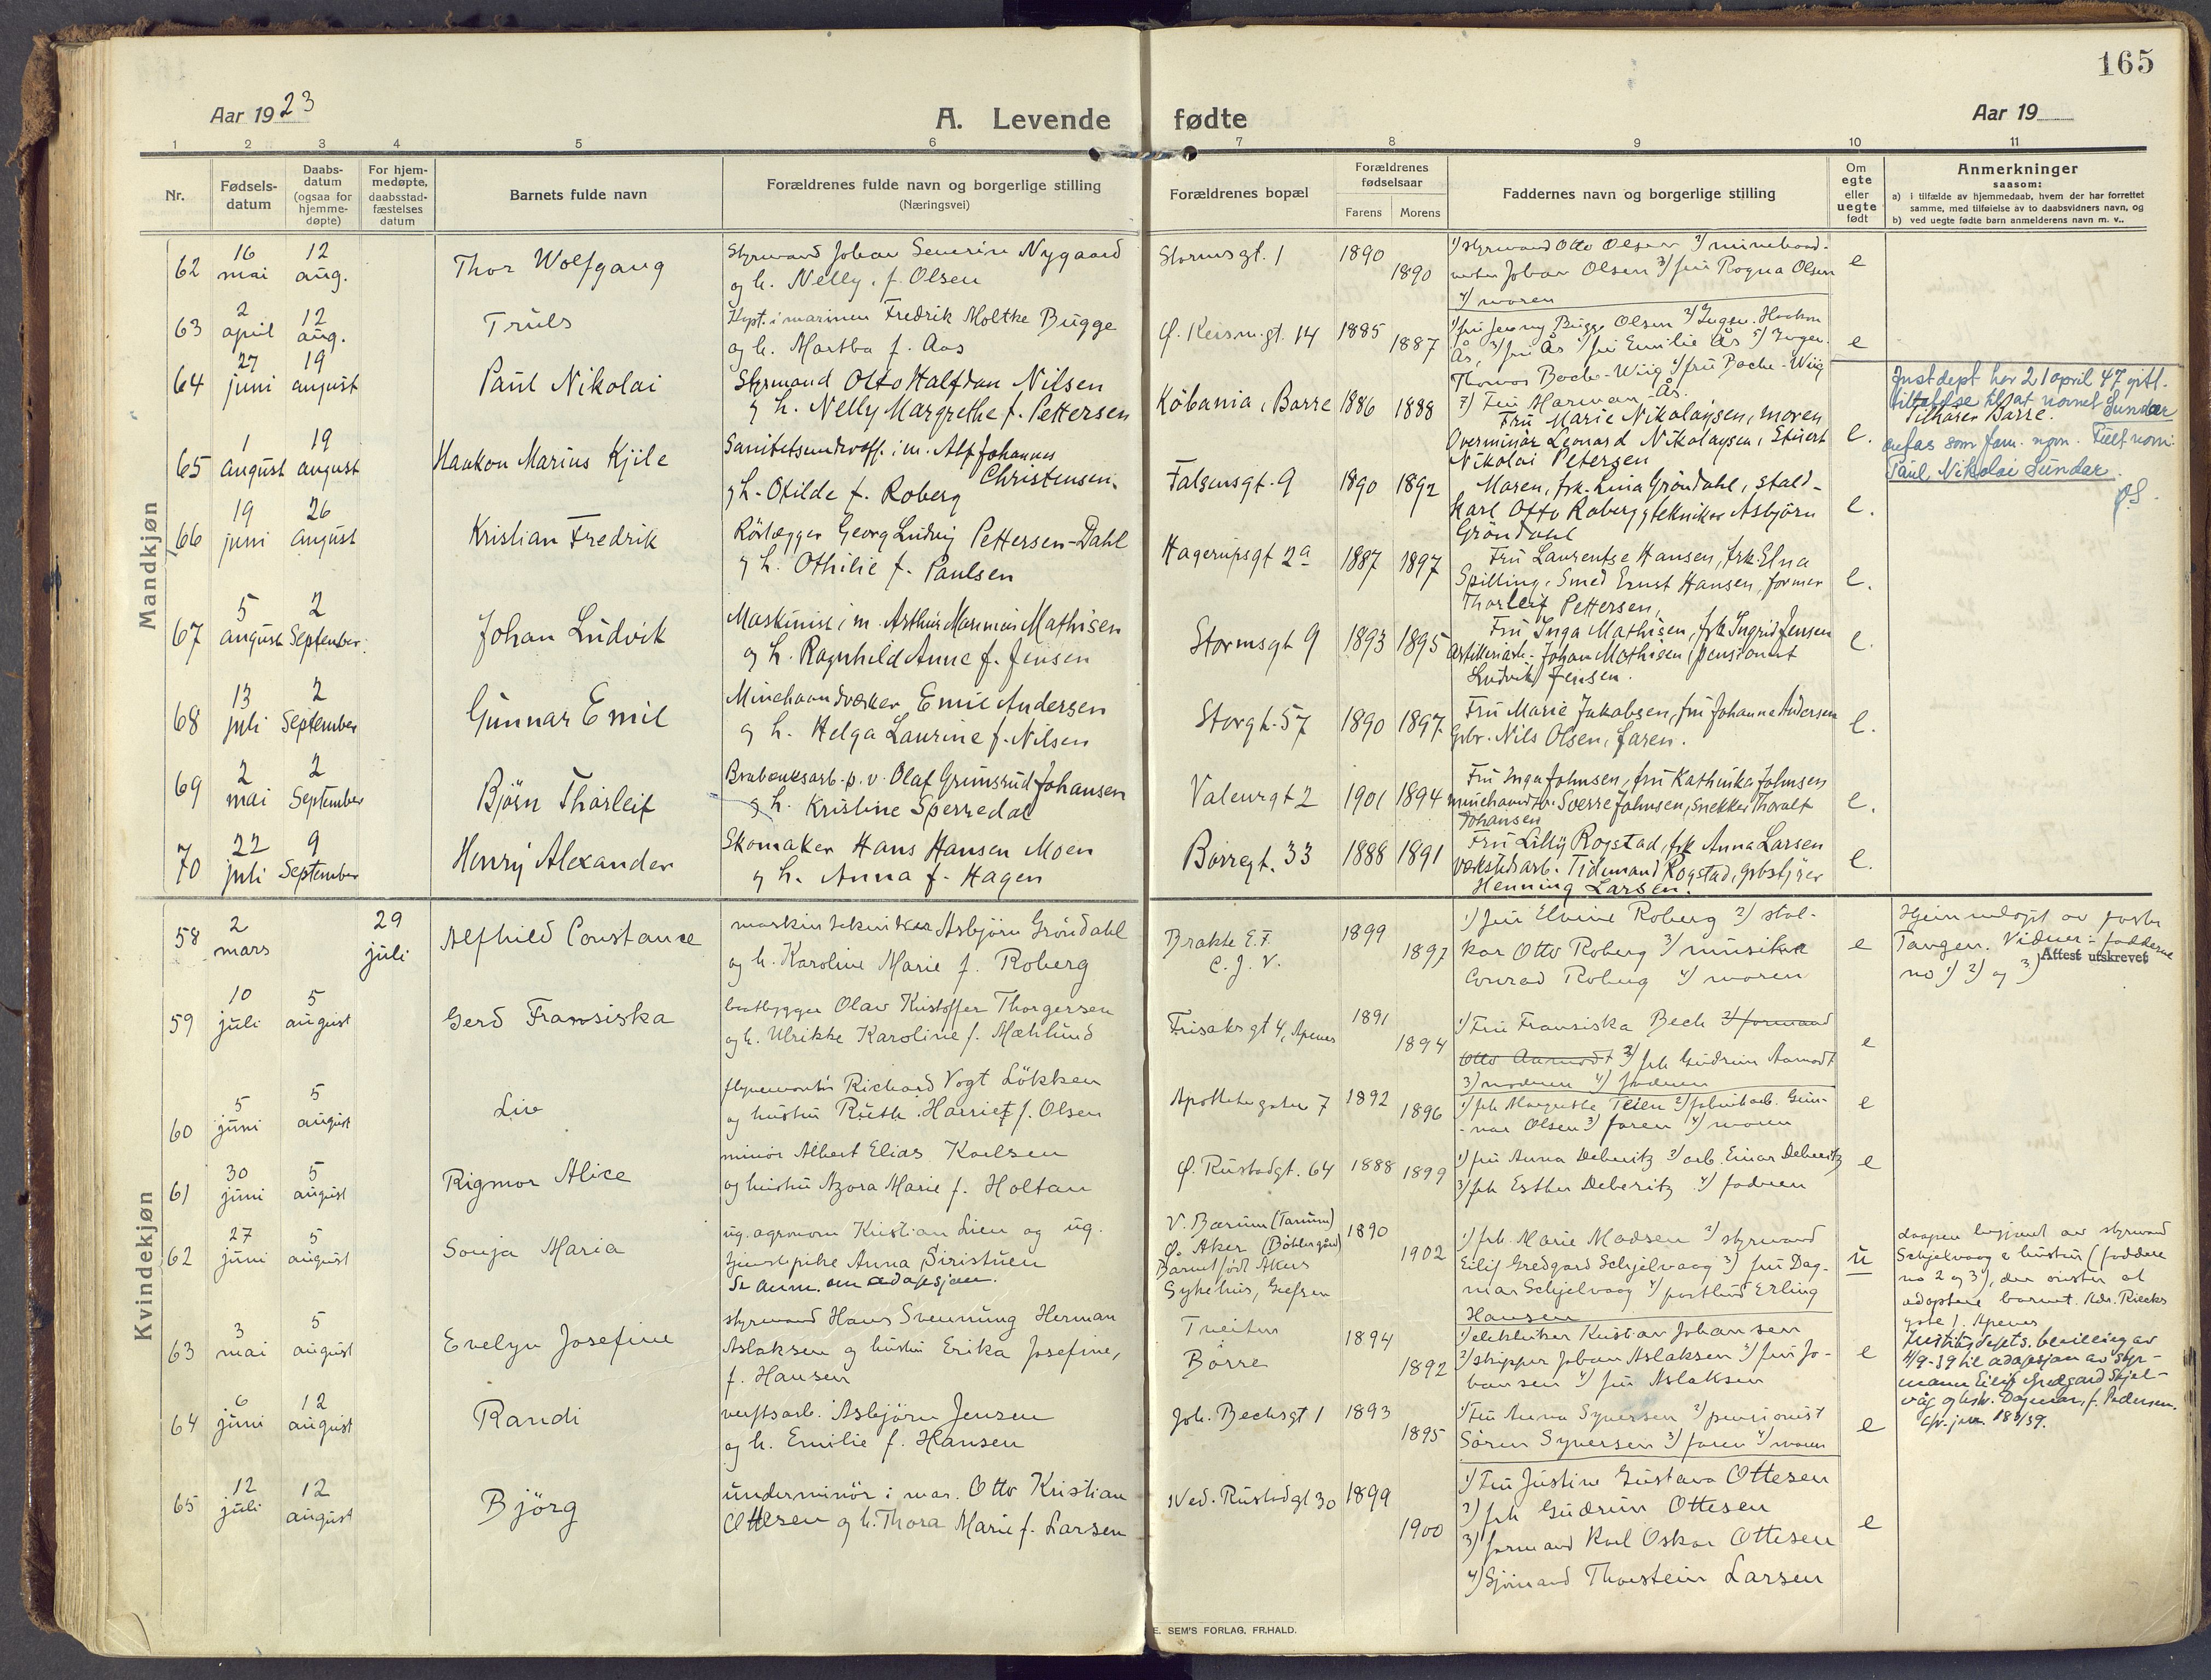 165
Aar 1923
A. Levende fødte
Aar 19
1 2 3 4 5 6 7 8 9 10 11
Nr.
Fødsels-
datum
Daabs-
datum
(ogsaa for
hjemme-
døpte)
For hjem-
medøpte,
daabsstad-
fæstelses
datum
Barnets fulde navn
Forældrenes fulde navn og borgerlige stilling
(Næringsvei)
Forældrenes bopæl
Forældrenes
fødselsaar
Farens Morens
Faddernes navn og borgerlige stilling
Om
egte
eller
uegte
født
Anmerkninger
saasom:
a) i tilfælde av hjemmedaab, hvem der har forrettet
samme, med tilføielse av to daabsvidners navn, og
b) ved uegte fødte barn anmelderens navn m. v..
Mandkjøn
62 16 mai 12 aug. Thor Wolfgang
Styrmand Johan Severin Nygaard
og h. Nelly, f. Olsen
Stormsgt. 1 1890 1890
1) styrmand Otto Olsen 2)
Johan Olsen 3) fru Rogna Olsen
4) moren
e
63 2 april 12 aug. Truls
Kapt. i marinen Fredrik Moltke Bugge
og h. Martha f. Aas
1885 1887
1) fru Jenny Bugge Olsen 2) Ingen. Haakon
Ås, 3) fru Ås 4) fru Emilie Ås 5) Ingen.
Thomas Bache-Wiig 6) fru Bache-Wiig
7) Fru Harman Ås.
e
64 27 juni 19 august Paul Nikolai
Styrmand Otto Halfdan Nilsen
og h. Nelly Margrethe f. Pettersen
Köbania, Borre 1886 1888
Fru Marie Nikolaysen, moren
Overminör Leonard Nikolaysen, Stuert
Nikolai Petersen
e.
Just dept har 21 april 47 gitt
tillatelse til at navnet Sundar
Tilhører Borre.
som fam. navn. Fullt navn
Paul Nikolai Sundar.
65 1 august 19 august Haakon Marius Kjile
Alf Johannes
Christensen.
og h. Otilde f. Roberg
Falsensgt. 9 1890 1892
Moren, frk. Lina Gröndahl,
Karl Otto Roberg, tekniker Asbjörn
Gröndahl
e.
66 19 juni 26 august Kristian Fredrik
Rörlægger Georg Ludvig Pettersen-Dahl
og h. Othilie f. Paulsen
Hagerupsgt 2a 1887 1897
Fru Laurentse Hansen, frk. Elna
Spilling, Smed Ernst Hansen, former
Thorleif Pettersen,
e.
67 5 august 2 September. Johan Ludvik
Maskinist i m. Arthur Marinius Mathisen
og h. Ragnhild Anne f. Jensen
Stormsgt 9 1893 1895
Fru Inga Mathisen, frk Ingrid Jensen
Artilleriarb. Johan Mathisen, pensionist
Ludvik Jensen.
e.
68 13 juli 2 September Gunnar Emil
Minehaandverker Emil Andersen
og h. Helga Laurine f. Nilsen
Storgt. 57 1890 1897
Fru Marie Jakobsen, fru Johanne Andersen
Grbr. Nils Olsen, faren.
e.
69 2 mai 2 September Björn Thorleif
Olaf Grimsrud Johansen
og h. Kristine Sperredal
Valeurgt 2 1901 1894
Fru Inga Johnsen, fru Kathinka Johnsen
Sverre Johnsen, snekker Thoralf
Johansen
e.
70 22 juli 9 September Henry Alexander
Skomaker Hans Hansen Moen
og h. Anna f. Hagen
Borregt. 33 1888 1891
Fru Lilly Rogstad, frk Anna Larsen
Verkstedsarb. Tidemand Rogstad,
Henning Larsen.
e.
Kvindekjøn
58 2 mars 29 juli Alfhild Constance
maskintekniker Asbjörn Gröndahl
og h. Karoline Marie f. Roberg
Brakke E.F.
C. J. V.
1899 1897
1) fru Elvine Roberg 2) stal-
kar Otto Roberg 3) musiker
Conrad Roberg 4) moren
e
Hjemmedøpt av
Tangen. Vidner: fadderne
no 1) 2) og 3)
Attest utskrevet
59 10 juli 5 august Gerd Fransiska
baatbygger Olav Kristoffer Thorgersen
og h. Ulrikke Karoline f. Mæhlund
Frisaksgt 4, Apenes 1891 1894
1) Fru Fransiska Bech 2) formand
Otto Aamodt 2) frk Gudrun Aamodt
3) moderen 4) faderen
e
60 5 juni 5 august Liv
Richard Vogt Lökken
og hustru Ruth Harriet f. Olsen
Apothekergaten 7 1892 1896
1) frk Margrethe Teien 2) fabrikarb. Gun-
nar Olsen 3) faren 4) moren
e
61 30 juni 5 august Rigmor Alice
minör Albert Elias Karlsen
og hustru Azora Marie f. Holtan
Ø. Rustadgt. 64 1888 1899
1) fru Anna Deberitz 2) arb. Einar Deberitz
3) frk Esther Deberitz 4) faderen
e
62 27 juni 5 august Sonja Maria
ug. agronom Kristian Lien og ug.
tjenestepike Anna Siristuen
Se anm. om adopsjon.
V. Bærum (Tanum)
Ø. Aker (Böhlergård)
Barnet født Akers
Sykehus, Grefsen
1890 1902
1) frk. Marie Madsen 2) styrmand
Eilif Gredgard Schjelvaag 3) fru Dag-
mar Schjelvaag 4) postbud Erling
Hansen
u
Daapen begjært av styrmand
Schjelvaag & hustru (faddere
no 2 og 3), der ønsker at
adoptere barnet. Adr. Riecks
gate 1. Apenes
Justitsdepts. bevilling av
4/9-39 til adopsjon av styr-
mann Eilif Gredgard Skjel-
våg og hustr. Dagmar, f. Pedersen.
63 3 mai 5 august Evelyn Josefine
styrmand Hans Svenning Herman
Aslaksen og hustru Erika Josefine,
f. Hansen
Borre
1894 1892
1) elektriker Kristian Johansen
2) skipper Johan Aslaksen 3) fru Jo-
hansen 4) fru Aslaksen
e
64 6 juni 12 august Randi
verftsarb. Asbjörn Jensen
og h. Emilie f. Hansen
Joh. Bechsgt 1 1893 1895
1) Fru Anna Syversen 2) pensionist
Sören Syversen 3) faren 4) moren
e
65 12 juli 12 august Björg
underminör i mar. Otto Kristian
Ottesen og h. Thora Marie f. Larsen
Ned. Rustadgt 30 1899 1900
1) Fru Justine Gustava Ottesen
2) frk Gudrun Ottesen
3) formand Karl Oskar Ottesen
4) Sjömand Thorstein Larsen
e
E. SEM'S FORLAG, FR.HALD.